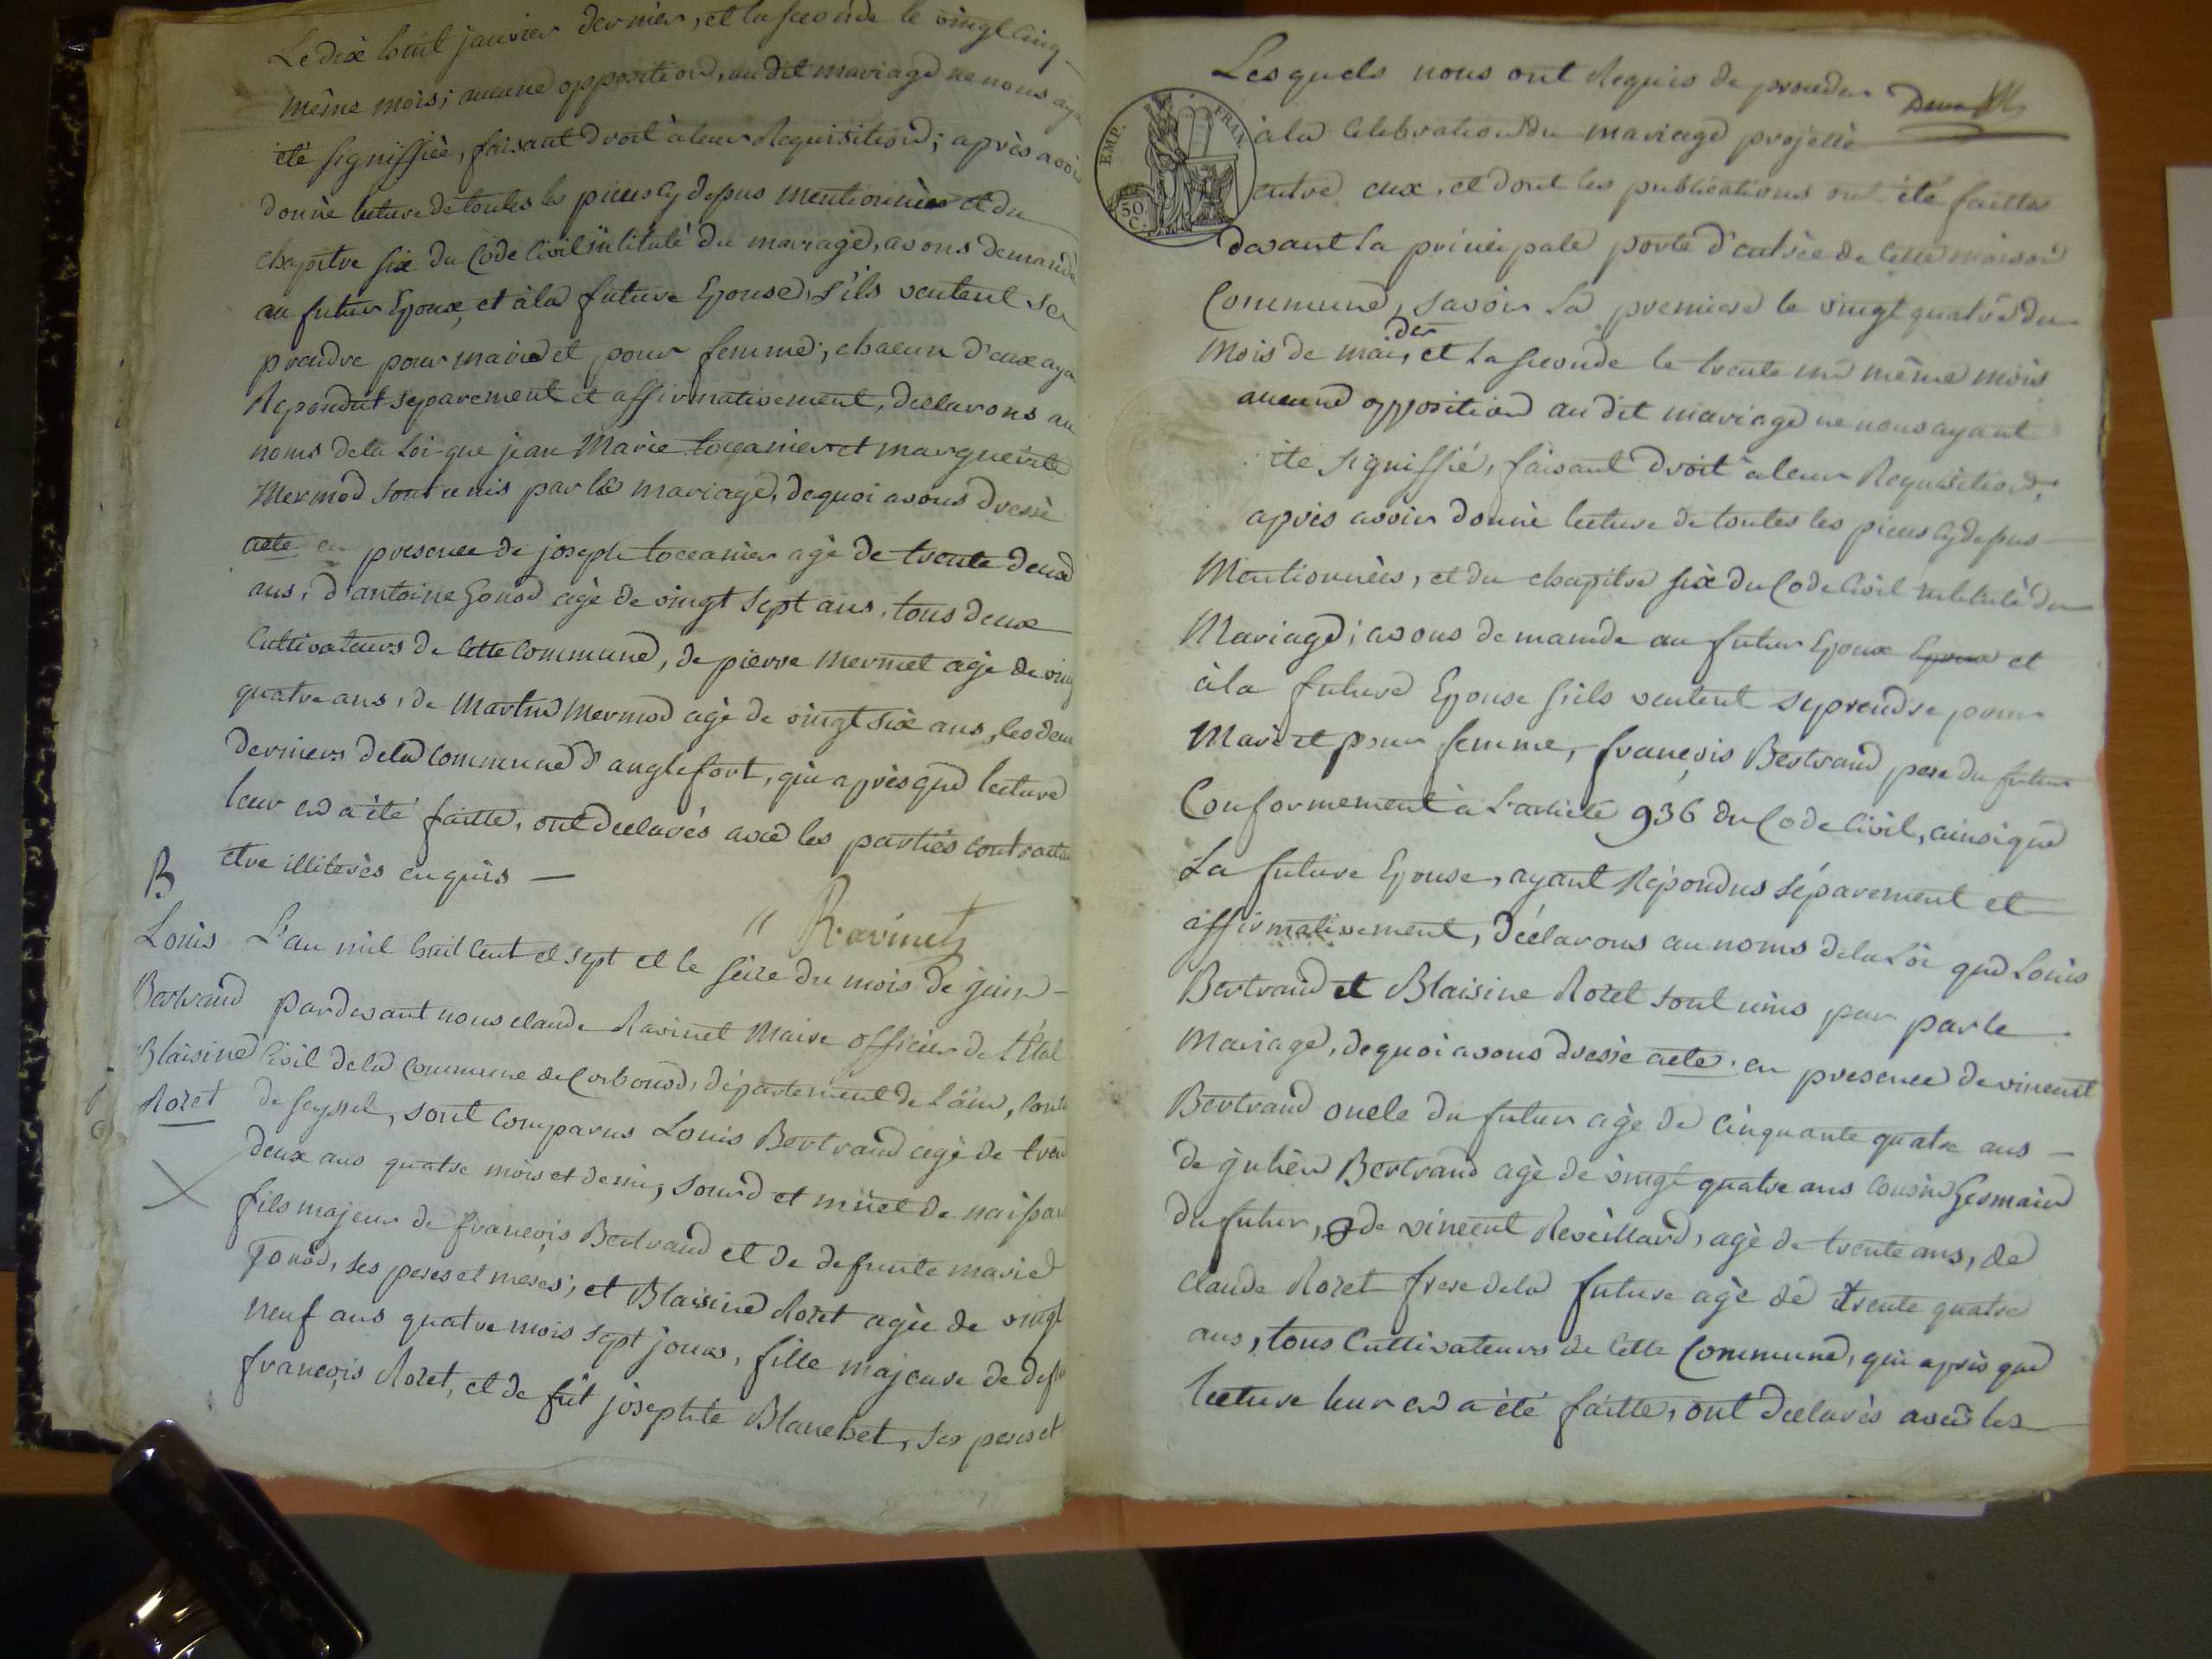 Le dix huit janvier dernier, et la seconde le vingt cinq
même mois; aucune opposition, au dit mariage ne nous aya
été signiffiée, faisant droit à leur Requisition; après avoir
donnè lecture de toutes les pieces cy dessus mentionnèes et du
chapitre six du Code Civil intitulé du mariage, avons demandé
au futur Epoux et à la future Epouse, s'ils veulent se
prendre pour mari et pour femme; chacun d'eux aya
Repondut separement et affirmativement, declarons au
noms de la Loi que jean Marie toccanier et marguerite
Mermod sont unis par le mariage, de quoi avons dressè
acte en presence de joseph toccanier agè de trente deux
ans, d'antoine Gonod agè de vingt sept ans, tous deux
Cultivateurs de cette commune, de pierre mermet agè de ving
quatre ans, de Martin Mermod agè de vingt six ans, les deux
derniers de la commune d'anglefort, qui après que lecture
leur en a été faitte, ont declarés avec les parties contracta
etre illiterès enquis —
Ravinet
B
Louis
Bertrand
Blaisine
Rozet
L'an mil huit cent et sept et le seize du mois de juin -
pardevant nous claude Ravinet Maire officier de l'Etat
Civil de la commune de Corbonod, département de l'ain, cont
de seyssel, sont comparus Louis Bertrand agè de tren
deux ans quatre mois et demi, sourd et müet de naissan
fils majeur de françois Bertrand et de defunte marie
Gonod, ses peres et meres; et Blaisine Rozet agèe de vingt
neuf ans quatre mois sept jours, fille majeure de def
françois Rozet, et de fût josephte Blanchet, ses peres et
Lesquels nous ont Requis de proceder
à la celebration du mariage projetté
entre eux, et dont les publications ont été faittes
devant la principale porte d'entrée de cette maison
Commune, savoir la premiere le vingt quatre du
der
mois de mai, et la seconde le trente un même mois
aucune opposition au dit mariage ne nous ayant
ète signiffié, faisant droit a leur Requisition,
après avoir donnè lecture de toutes les pieces cy dessus
Mentionnèes, et du chapitre six du Code Civil intitulè du
Mariage; avons demande au futur Epoux Epoux et
à la future Epouse s'ils veulent se prendre pour
Mari et pour femme, françois Bertrand pere du futur
Conformement à l'article 936 du Code Civil, ainsi que
La future Epouse, ayant Répondus séparement et
affirmativement, déclarons au noms de la Loi que Louis
Bertrand et Blaisine Rozet sont unis par par le
Mariage, de quoi avons dressè acte, en presence de vincent
Bertrand oncle du futur agè de cinquante quatre ans -
de julien Bertrand agè de vingt quatre ans cousin Germain
du futur, de vincent Reveillard, agè de trente ans, de
claude Rozet frere de la future agè dé trente quatre
ans, tous Cultivateurs de cette Commune, qui après que
lecture leur en a été faitte, ont declarès avec les
EMP. FRAN.
50 C.